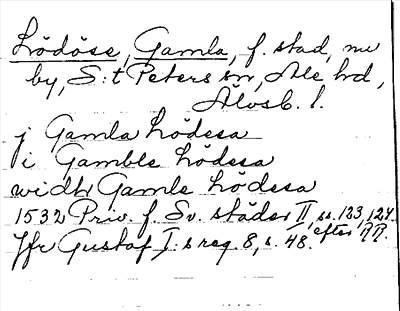 Lödöse, Gamla, f. stad, nu
by, S:t Peters sn, Ale hd,
Älvsb. l.
j Gamla Lödesa
i Gamble Lödesa
widh Gamle Lödesa
1532 Priv. f. Sv. städer II, ss. 123, 124.
Jfr Gustaf I:s reg. 8, s. 48. efter RR.